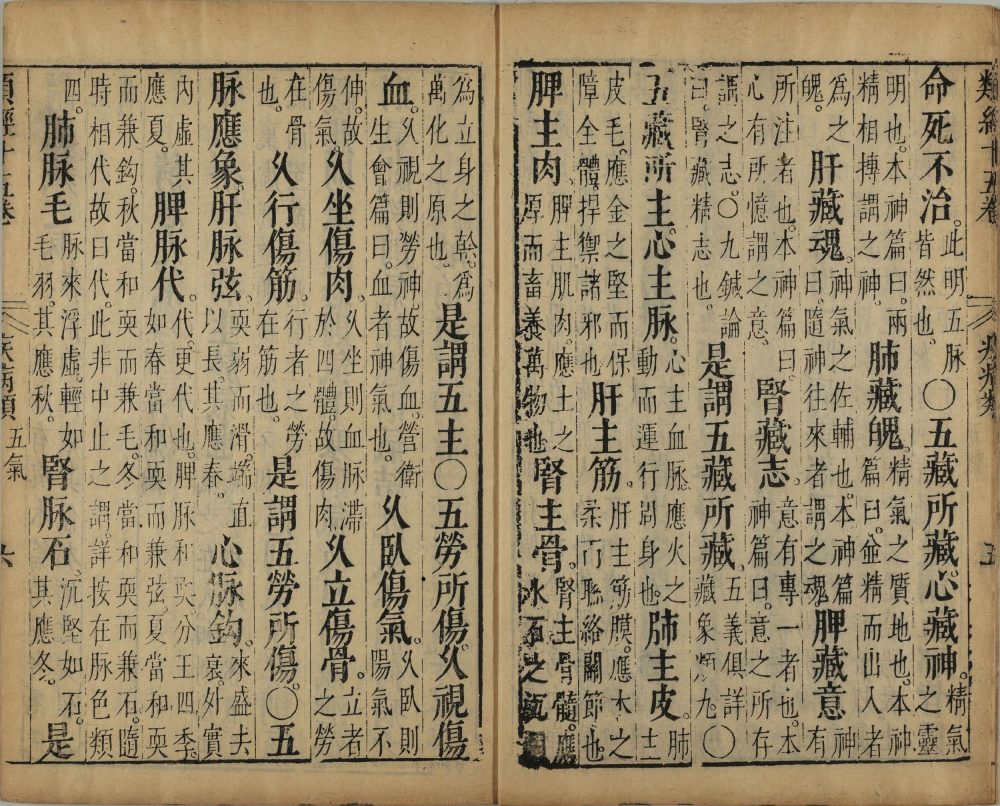 類經十五卷 疾病類 五
命死不治。此明五脉皆然也。○五藏所藏心藏神。精氣之靈
明也。本神篇曰。兩精相搏謂之神。肺藏魄。精氣之質地也。本神篇曰。並精而出入者
爲之魄。肝藏魂。神氣之佐輔也。本神篇曰。隨神往來者謂之魂脾藏意神有
所注者也。本神篇曰。心有所憶謂之意。腎藏志。意有專一者也。本神篇曰。意之所存
謂之志。○九鍼論曰。腎藏精志也。是謂五藏所藏。五義俱詳藏象類九○
五藏所主心主脉。心主血脉應火之動而運行周身也。肺主皮。肺主
皮毛。應金之堅而保障全體。捍禦諸邪也肝主筋。肝主筋膜。應木之柔而聯絡關節也
脾主肉。脾主肌肉。應土之厚而畜養萬物也腎主骨。腎主骨髓。應水石之沉
為立身之幹。為萬化之原也。是謂五主○五勞所傷。久視傷
血。久視則勞神。故傷血。營衛生會篇曰。血者神氣也。久臥傷氣。久臥則陽氣不
伸。故傷氣。久坐傷肉。久坐則血脉滯於四體。故傷肉久立傷骨。立者之勞
在骨也。久行傷筋。行者之勞在筋也。是謂五勞所傷。○五
脉應象。肝脉弦。耎弱而滑。端直以長。其應春。心脉鉤。來盛去衰外實
內虛其應夏。脾脉代。代。更代也。脾脉和耎。分王四季。如春當和耎而兼弦。夏當和耎
而兼鉤。秋當和耎而兼毛。冬當和耎而兼石。隨時相代故曰代。此非中止之謂。詳按在脉色類
四。肺脉毛。脉來浮虛。輕如毛羽。其應秋。腎脉石。沉堅如石。其應冬。是
類經十五卷 疾病類 五氣 六